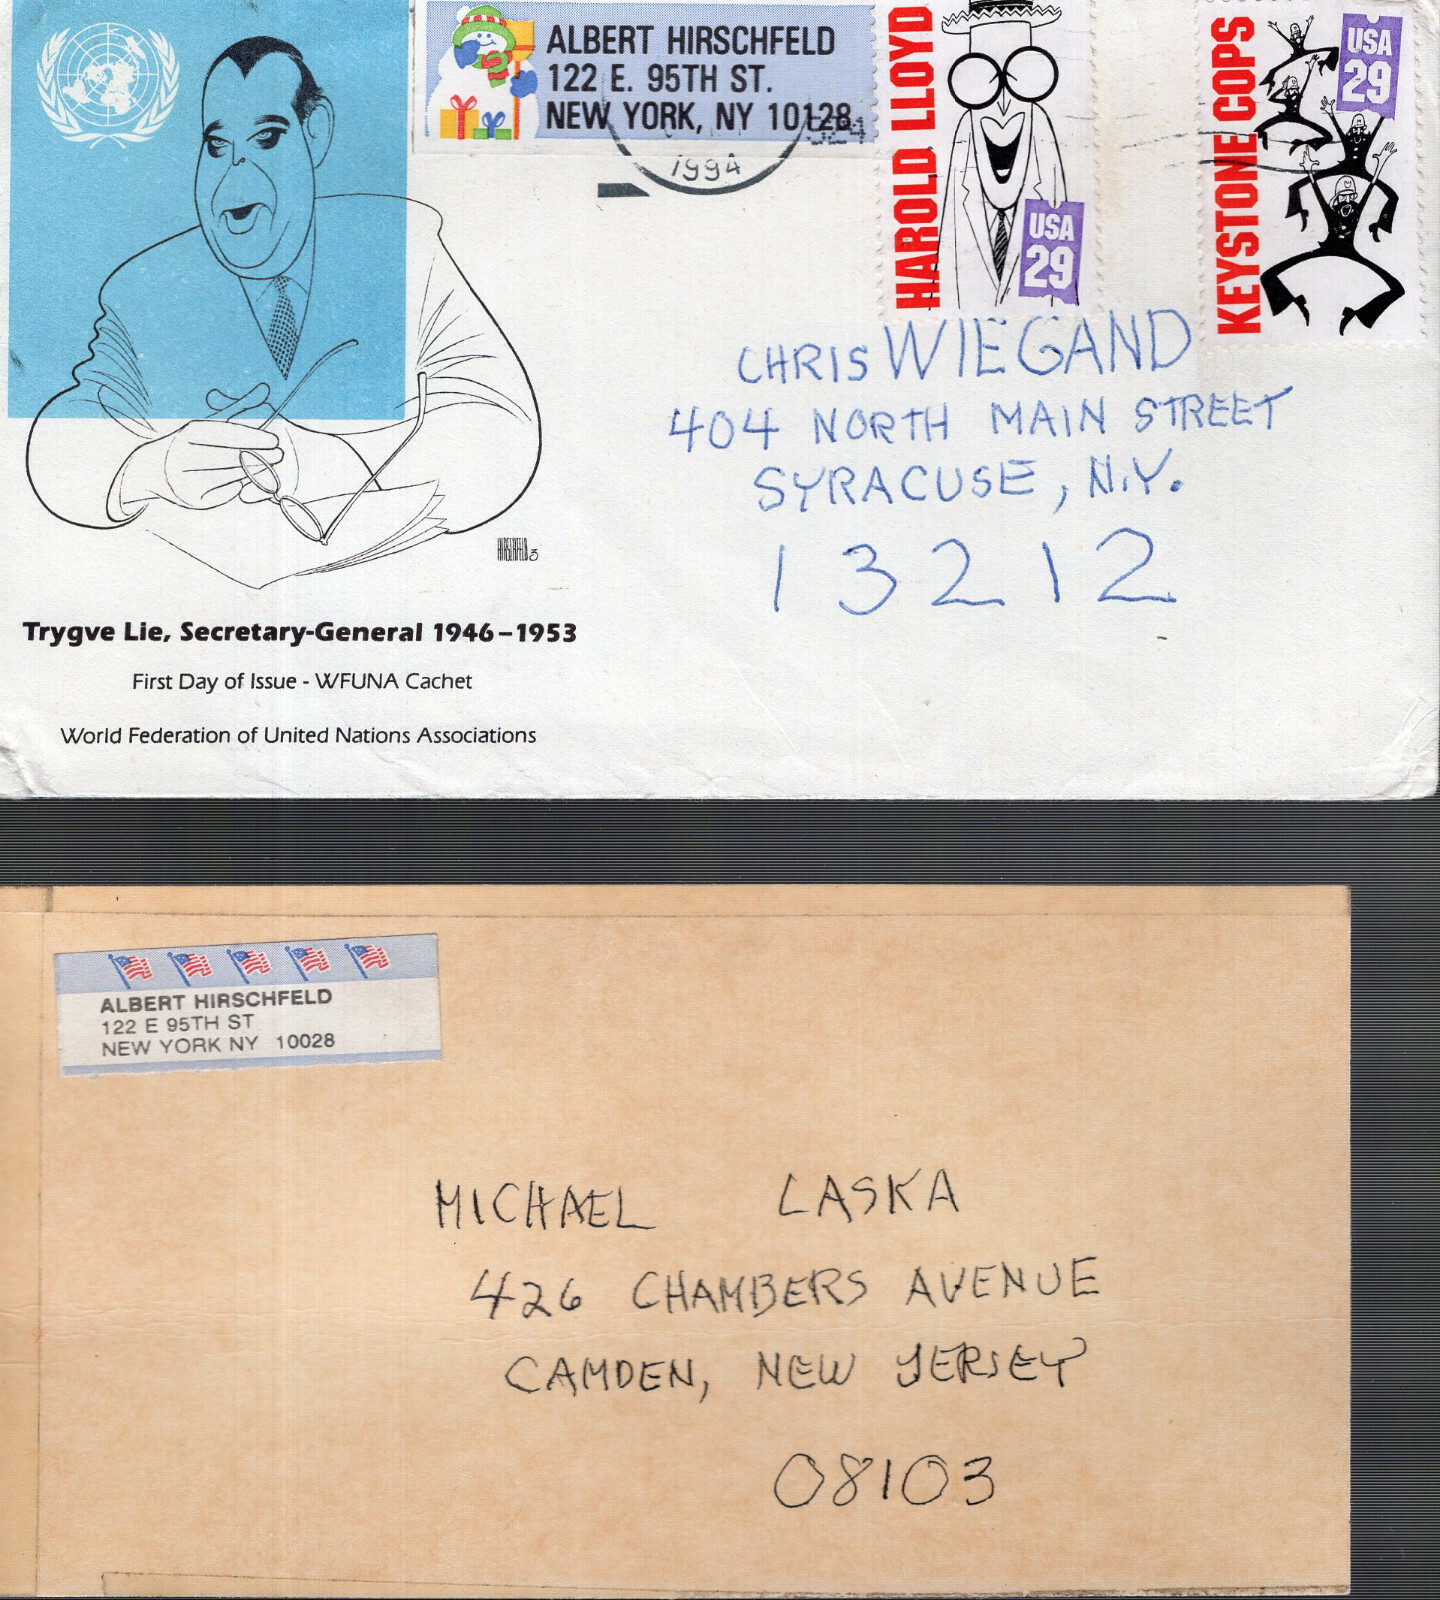 ALBERT HIRSCHFELD
122 E. 95TH ST.
NEW YORK, NY 10128
1994
HAROLD LLOYD
USA
29
KEYSTONE COPS
USA
29
CHRIS WIEGAND
404 NORTH MAIN STREET
SYRACUSE, N.Y.
13212
HIRSCHFELD 3
Trygve Lie, Secretary-General 1946–1953
First Day of Issue - WFUNA Cachet
World Federation of United Nations Associations
ALBERT HIRSCHFELD
122 E 95TH ST
NEW YORK NY 10028
MICHAEL LASKA
426 CHAMBERS AVENUE
CAMDEN, NEW JERSEY
08103